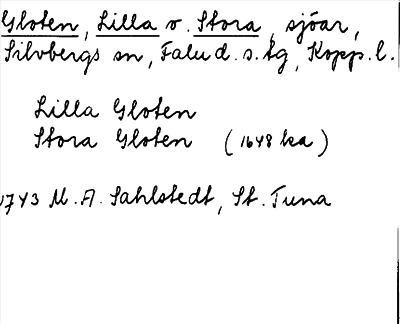 Gloten, Lilla o. Stora, sjöar,
Silvbergs sn, Falu d. s. tg, Kopp. l.
Lilla Gloten
Stora Gloten (1648 ka)
1743 M. A. Sahlstedt, St. Tuna